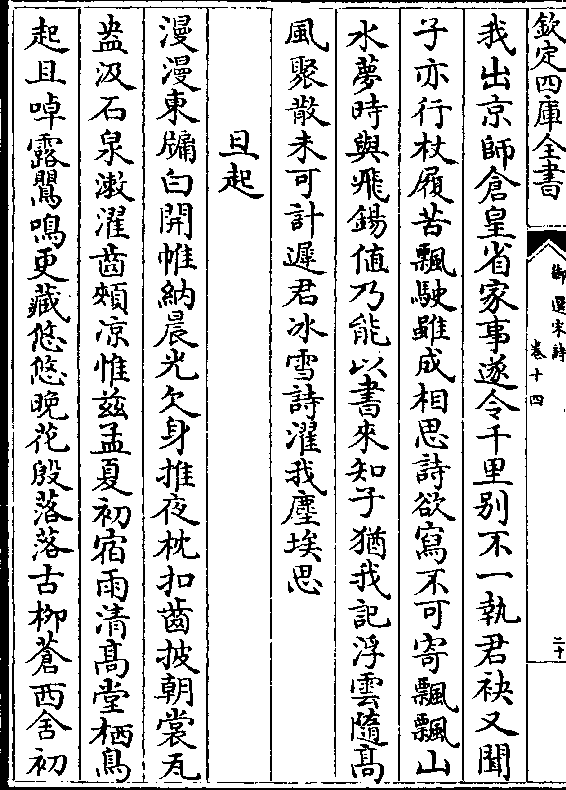 欽定四庫全書
御選宋詩
卷十四
二十
我出京師倉皇省家事遂令千里别不一執君袂又聞
子亦行杖屨苦飄駛雖成相思詩欲寫不可寄飄飄山
水夢時與飛錫值乃能以書來知子猶我記浮雲隨髙
風聚散未可計遲君冰雪詩濯我塵埃思
旦起
漫漫東牖白開帷納晨光欠身推夜枕扣齒披朝裳瓦
盎汲石泉漱濯齒頰凉惟兹孟夏初宿雨清髙堂栖鳥
起且啅露鸎鳴更藏悠悠晚花殷落落古柳蒼西舍初